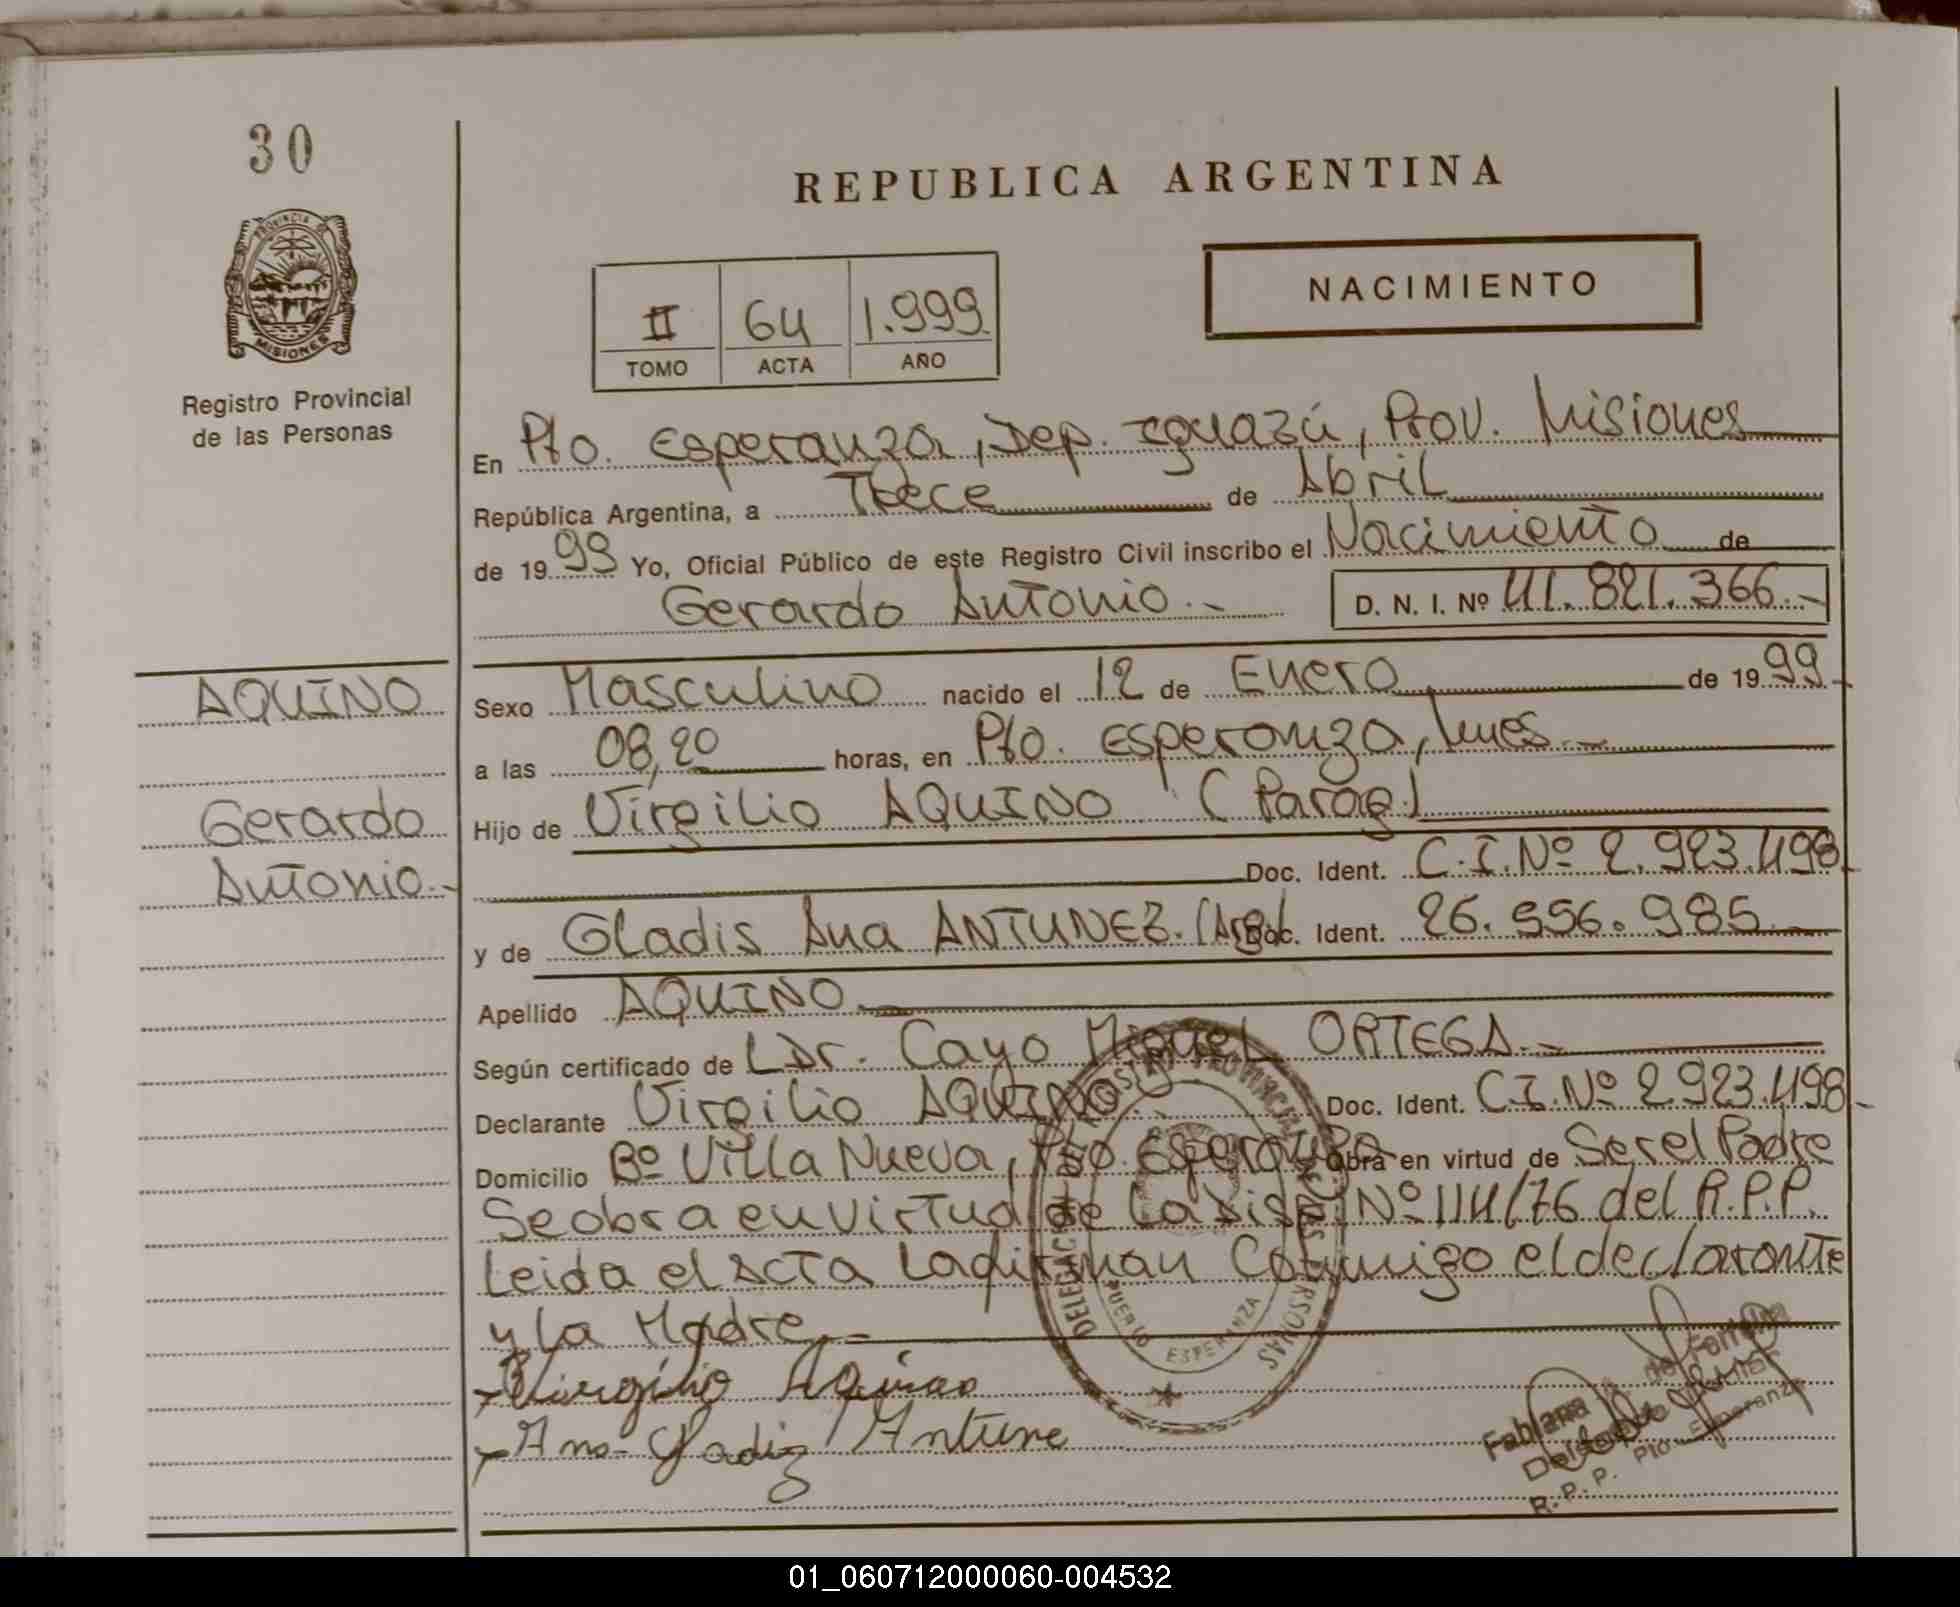 30
REPUBLICA ARGENTINA
PROVINCIA DE
MISIONES
NACIMIENTO
II 64 1.999
TOMO ACTA AÑO
Registro Provincial
de las Personas
En Pto. Esperanza, Dep. Iguazú, Prov. Misiones
República Argentina, a Trece de Abril
de 1999 Yo, Oficial Público de este Registro Civil inscribo el Nacimiento de
Gerardo Antonio.- D. N. I. Nº 41.821.366.-
AQUINO
Sexo Masculino nacido el 12 de Enero de 1999.-
a las 08,20 horas, en Pto. Esperanza, Mnes.-
Gerardo
Hijo de Virgilio AQUINO (Parag)
Antonio.-
Doc. Ident. C.I.Nº 2.923.498.-
y de Gladis Ana ANTUNEZ. (Arg) Doc. Ident. 26.556.985.-
Apellido AQUINO.-
Según certificado de Dr. Cayo Miguel ORTEGA.-
Declarante Virgilio AQUINO.- Doc. Ident. C.I.Nº 2.923.498.-
Domicilio Bº Villa Nueva, Pto. Esperanza Obra en virtud de Ser el Padre
Se obra en virtud de la Disp. Nº 114/76 del R.P.P.
Leida el Acta la firman Conmigo el declarante
y la Madre.-
Virgilio Aquino
Ana Gladiz Antune
PUERTO ESPERANZA
Fabiana de
R. P. P. Pto. Esperanza
01_060712000060-004532